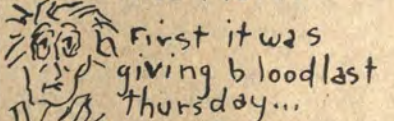 first it was
giving blood last
thursday...